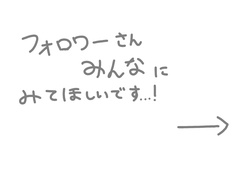 フォロワーさん
みんなに
みてほしいです...!